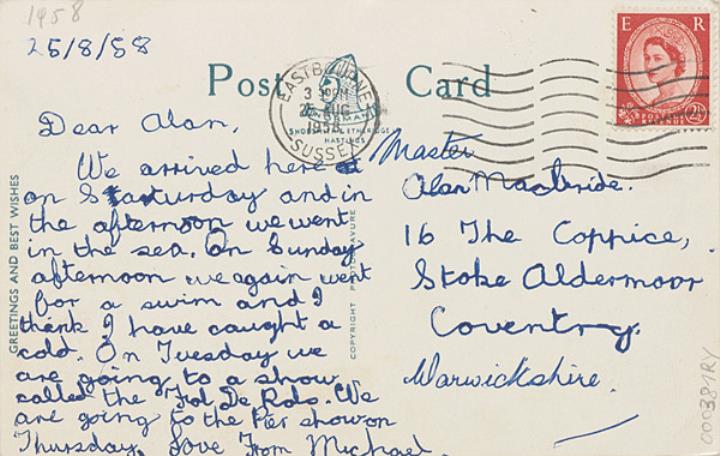 1958
25/8/58
Post Card
EASTBOURNE
3 PM
25 AUG
1958
SUSSEX
SHOESMITH & ETHERIDGE
HASTINGS
E R
Dear Alan,
We arrived here
on Saturday and in
the afternoon we went
in the sea. On Sunday
afternoon we again went
for a swim and I
think I have caught a
cold. On Tuesday we
are going to a show
called the Fol De Rols. We
are going to the Pier show on
Thursday. Love From Michael
Master
Alan Macbride.
16 The Coppice,
Stoke Aldermoor
Coventry.
Warwickshire.
GREETINGS AND BEST WISHES
COPYRIGHT PHOTOGRAVURE
000381RY